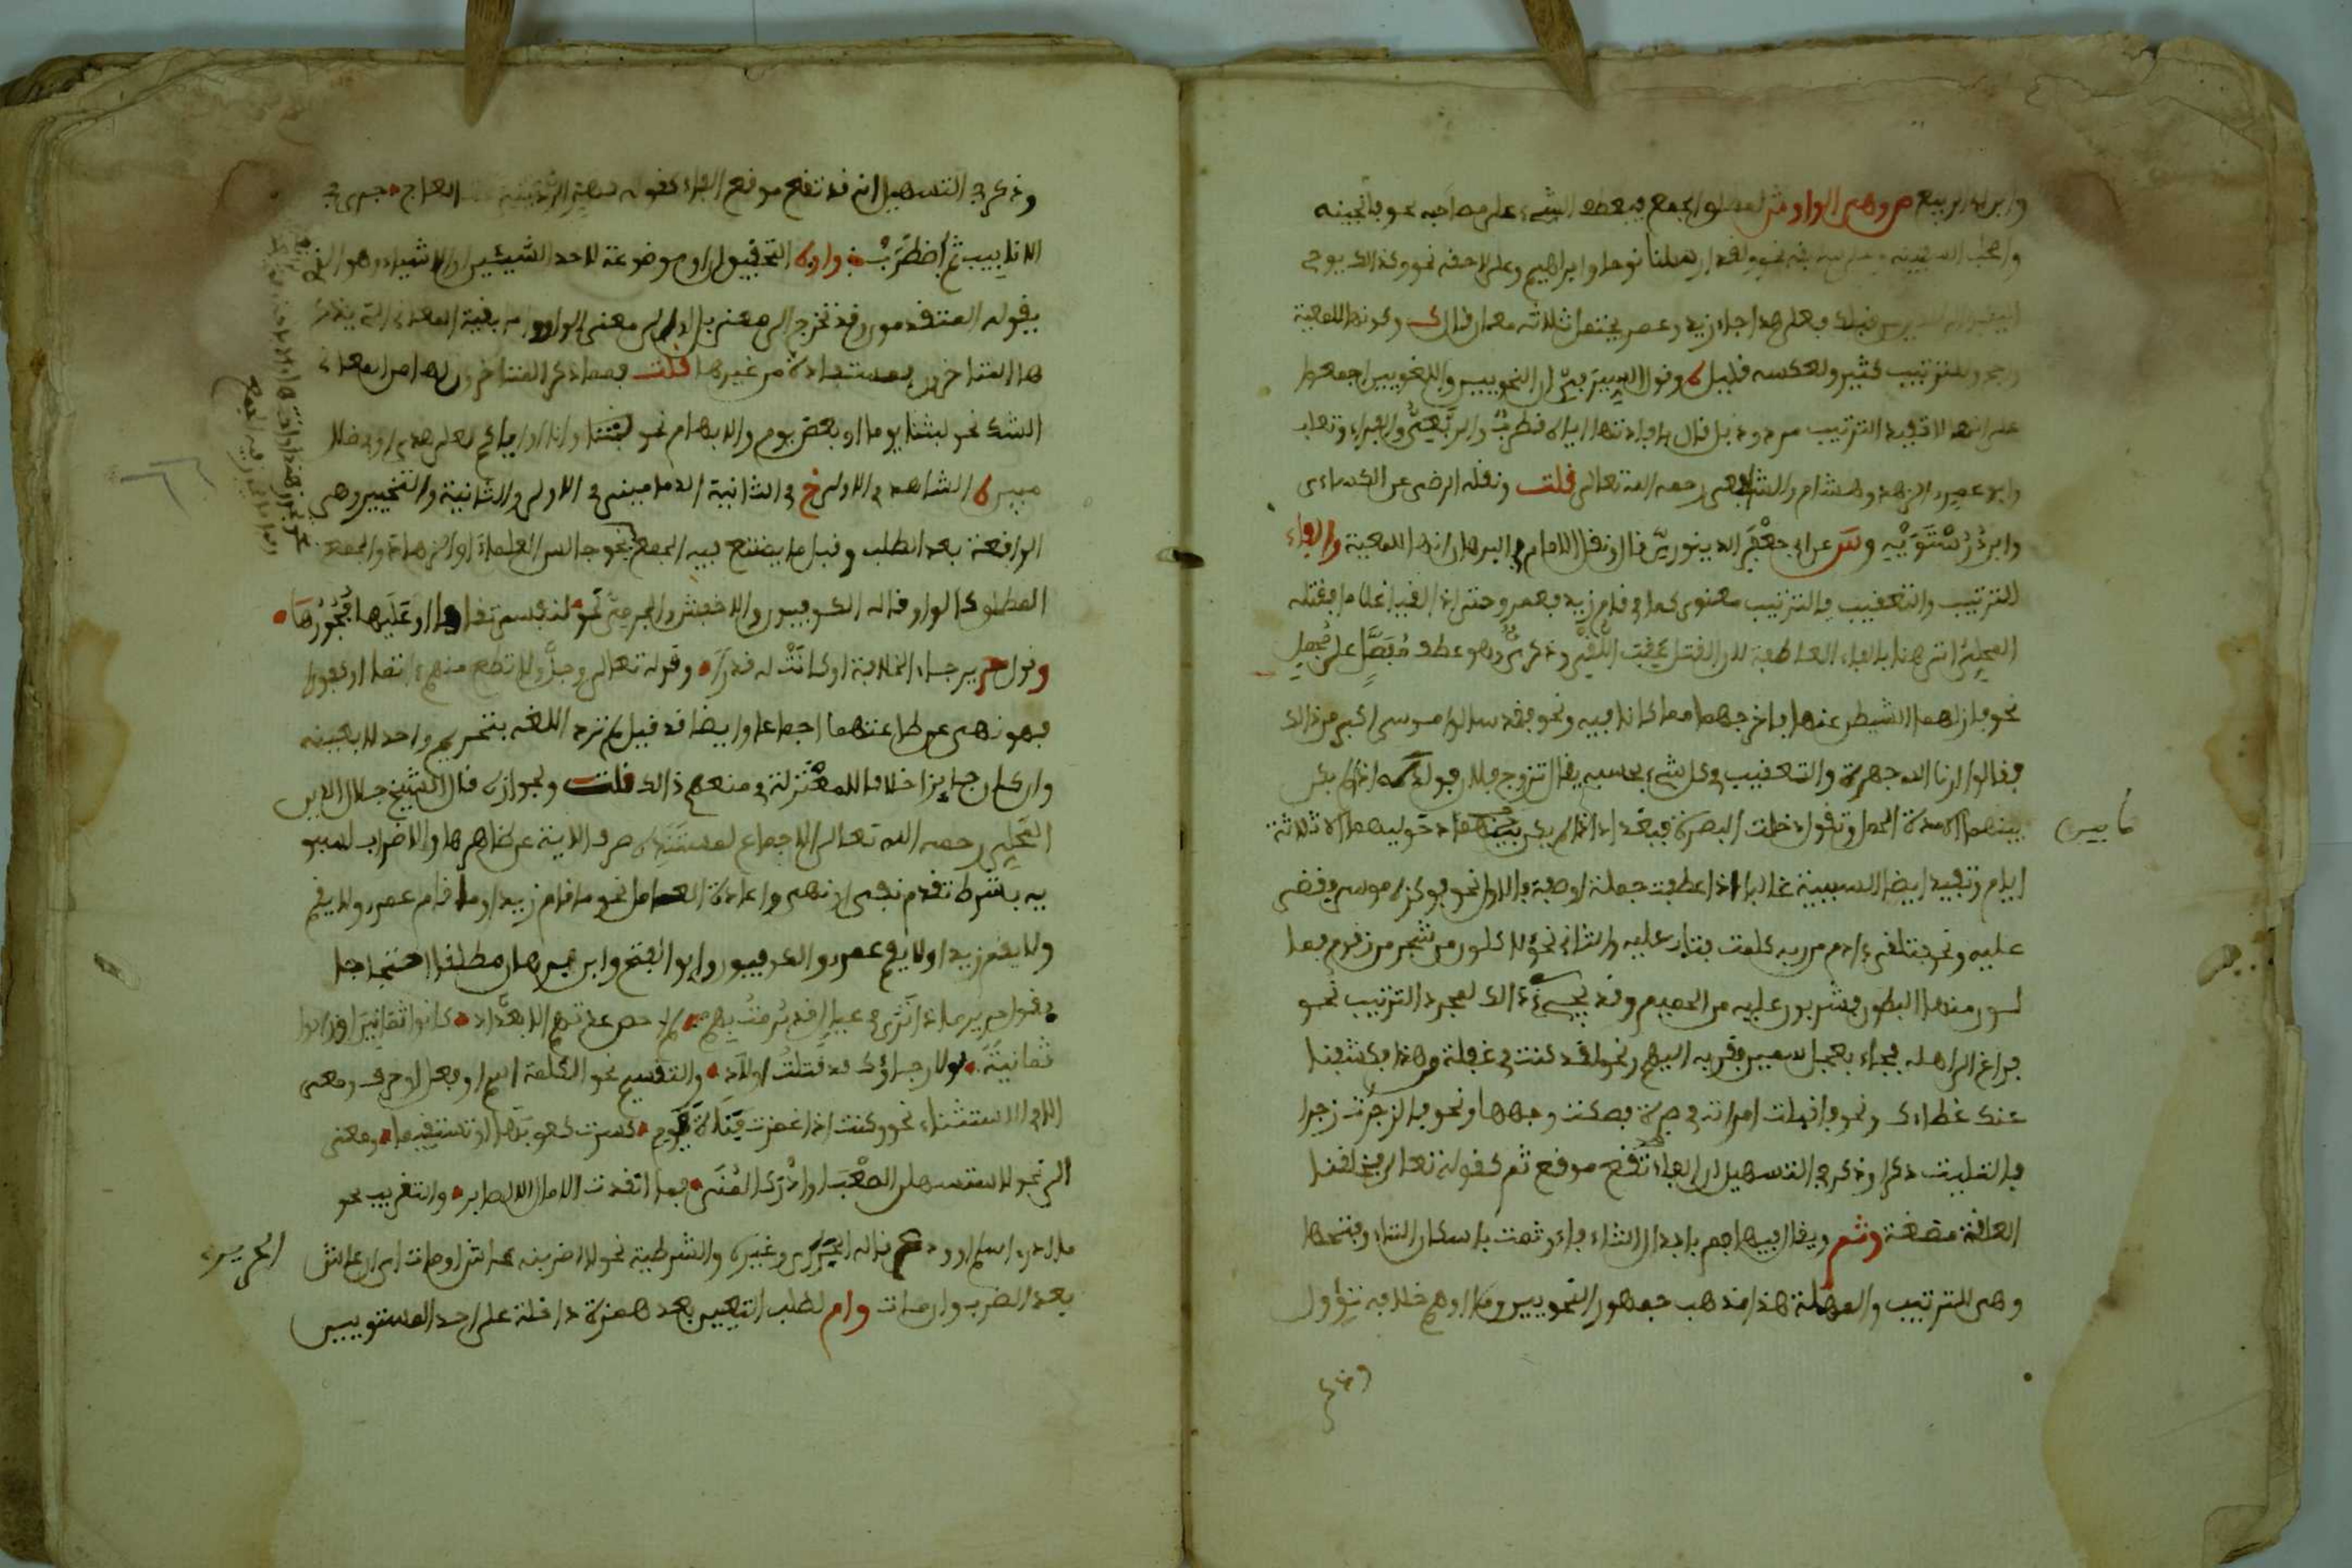 وابن ابي الربيع ص وهي الواو ش لمطلق الجمع فتعطف الشيء على مصاحبه نحو فانجينه
واصحاب السفينة وعلى سابقه نحو ولقد ارسلنا نوحا وابراهيم وعلى لاحقه نحو وكذالك يوحى
اليك والى الذين من قبلك فعلى هذا اذا جاء زيد وعمر يحتمل ثلاثة معان قال ك وكونها للمعية
راجح وللترتيب كثير ولعكسه قليل ه وقول السيرافي ان النحويين واللغويين اجمعوا
على انها لا تفيد الترتيب مردود بل قال بافادتها اياه قطرب والربعي والفراء وثعلب
وابو عمر الزاهد وهشام والشافعي رحمه الله تعالى قلت ونقله الرضي عن الكسائي
وابن درستويه و عن ابي جعفر الدينوري قال ونقل الامام في البرهان انها للمعية والفاء
للترتيب والتعقيب فالترتيب معنوي كما في قام زيد فعمرو حتى اذا لقيا غلاما فقتله
اتى هنا بالفاء العاطفة لان القتل عقب اللقي وذكري وهو عطف مفصل على مجمل
نحو فازلهما الشيطن عنها فاخرجهما مما كانا فيه ونحو فقد سالوا موسى اكبر من ذالك
فقالوا ارنا الله جهرة والتعقيب في كل شيء بحسبه يقال تزوج فلان فولد له اذا لم يكن
بينهما الا مدة الحمل وتقول دخلت البصرة فبغداد اذا لم يكن بينهما دخوليهما الا ثلاثة
ايام وتفيد ايضا السببية غالبا اذا عطفت جملة او صفة فالاول نحو فوكزه موسى فقضى
عليه ونحو فتلقى ءادم من ربه كلمت فتاب عليه والثاني نحو لاكلون من شجر من زقوم فما
لئون منها البطون فشربون عليه من الحميم وقد يجيء ذالك لمجرد الترتيب نحو
فراغ الى اهله فجاء بعجل سمين فقربه اليهم ونحو لقد كنت في غفلة من هذا فكشفنا
عنك غطاءك ونحو فاقبلت امراته في صرة فصكت وجهها ونحو فالزجرت زجرا
فالتليت ذكرا وذكر في التسهيل ان الفاء تقع موقع ثم كقوله تعالى فخلقنا
العلقة مضغة وثم ويقال فيها فم بابدال الثاء فاء وثمت باسكان التاء وفتحها
وهي للترتيب والمهلة هذا مذهب جمهور النحويين وما اوهم خلافه تؤول
ما بين
وذكر
وذكر في التسهيل انه قد تقع موقع الفاء كقوله العجاج جرى في
الانابيب ثم اضطرب واو التحقيق ان او موضوعة لاحد الشيئين او الاشياء وهو الذي
يقوله المتقدمون وقد تخرج الى معنى بل والى معنى الواو واما بقية المعاني التي يذكر
ها المتاخرون فمستفادة من غيرها قلت فمما ذكر المتاخرون لها من المعاني
الشك نحو لبثنا يوما او بعض يوم والابهام نحو وانا او اياكم لعلى هدى او في ضلل
مبين ه الشاهد في الاولى خ في الثانية الدماميني في الاولى والثانية والتخيير وهي
الواقعة بعد الطلب وقبل ما يمتنع فيه الجمع نحو جالس العلماء او الزهاد والجمع
المطلق كالواو قاله الكوفيون والاخفش والجرمي نحو لنفسي تقاها او عليها فجورها
وقول جرير جاء الخلافة او كانت له قدرا وقوله تعالى وجل ولا تطع منهم ءاثما او كفورا
فهو نهي عن طاعتهما اجماعا وايضا قد قيل لم ترد اللغة بتحريم واحد لا بعينه
وان كان جايزا خلافا للمعتزلة في منعهم ذالك قلت وبجوازه قال الشيخ جلال الدين
المحلي رحمه الله تعالى الاجماع لمستنده صرف الاية عن ظاهرها والاضراب لسيبو
يه بشرط تقدم نفي او نهي واعادة العامل نحو ما قام زيد او ما قام عمرو ولا يقم
ولا يقم زيد او لا يقم عمرو والكوفيون وابو الفتح وابن برهان مطلقا احتجاجا
بقول جرير ماذا ترى في عيال قد برمت بهم لم احص عدتهم الا بعداد كانوا ثمانين او زادوا
ثمانية لولا رجاؤك قد قتلت اولادي والتقسيم نحو الكلمة اسم او فعل او حرف ومعنى
الا في الاستثناء نحو وكنت اذا غمزت قناة قوم كسرت كعوبها او تستقيما ومعنى
الى نحو لاستسهلن الصعب او ادرك المنى فما انقدت الامال الا لصابر والتقريب نحو
ما ادري اسلم او ودع قاله الحريري وغيره والشرطية نحو لاضربنه عاش او مات اي ان عاش
بعد الضرب وان مات وام لطلب التعيين بعد همزة داخلة على احد المستويين
الحريري